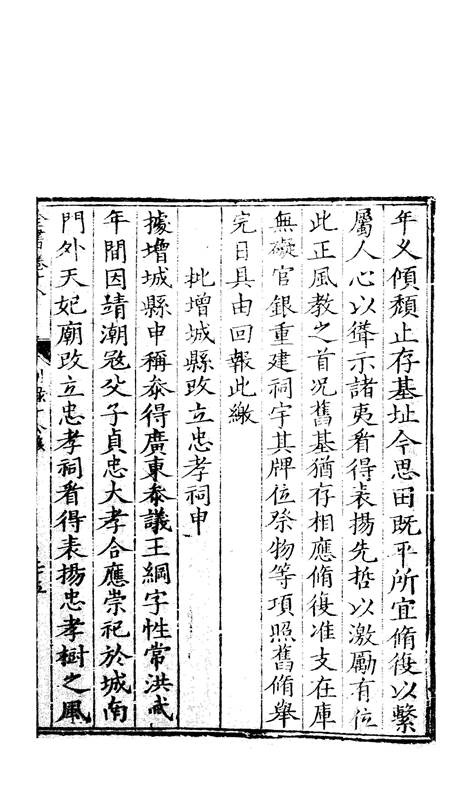 年久傾頽止存基址今思田既平所宜脩復以繫
屬人心以聳示諸夷看得表揚先哲以激勵有位
此正風教之首況舊基猶存相應脩復准支在庫
無礙官銀重建祠宇其牌位祭物等項照舊脩舉
完日具由回報此繳
批增城縣改立忠孝祠申
據增城縣申稱叅得廣東叅議王綱字性常洪武
年間因靖潮寇父子貞忠大孝合應崇祀於城南
門外天妃廟改立忠孝祠看得表揚忠孝樹之風